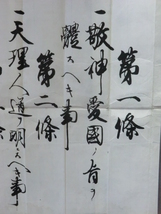 第一條
一敬神愛國ノ旨ヲ
體スヘキ事
第二條
一天理人道ヲ明ニスヘキ事